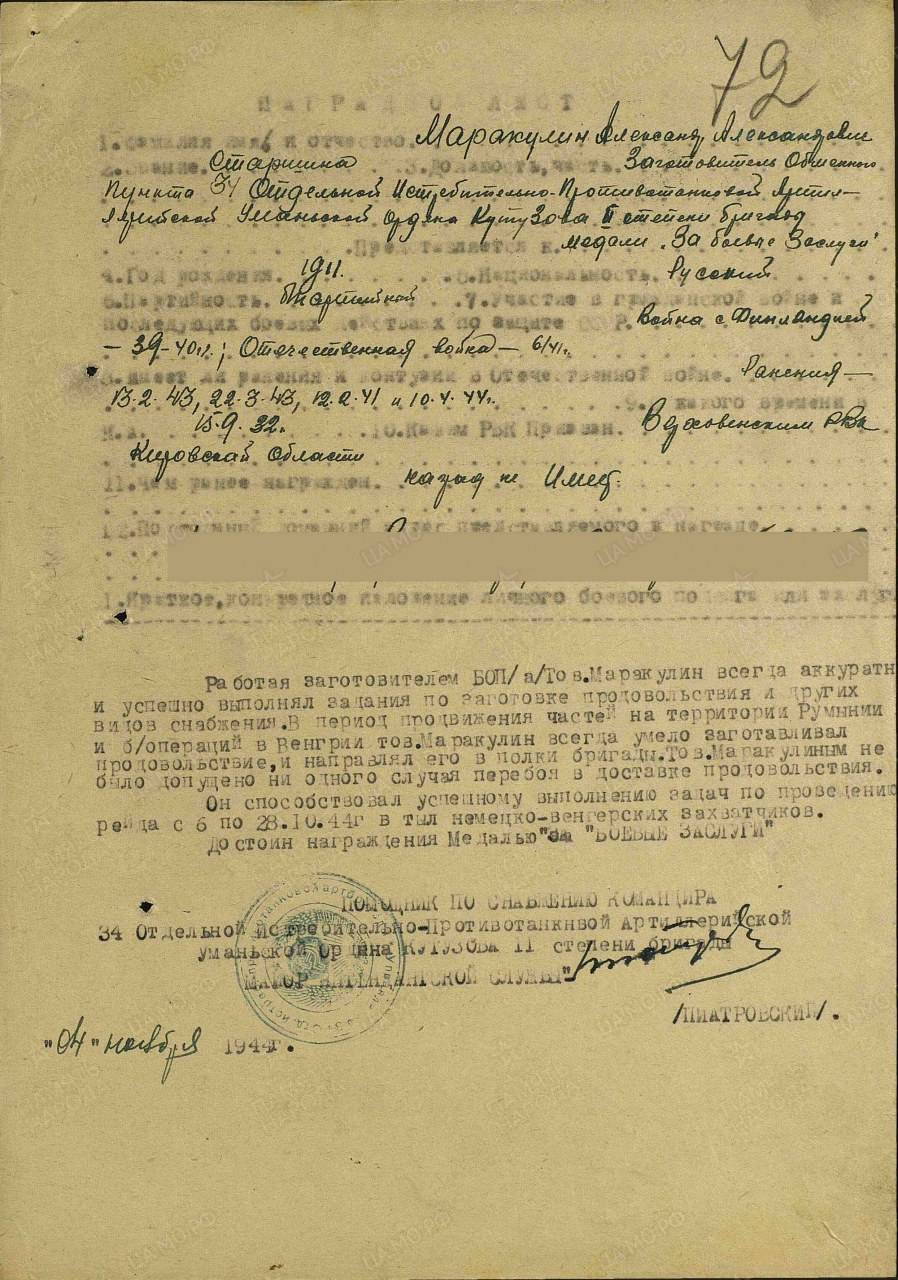 72
НАГРАДНОЙ ЛИСТ
1. Фамилия имя и отчество Маракулин Александр Александрович
2. Звание. Старшина 3. Должность, часть. Заготовитель Обменного
Пункта 34 Отдельной Истребительно-Противотанковой Артил-
лерийской Уманьской ордена Кутузова II степени бригады
Представляется к. Медали "За боевые Заслуги"
4. Год рождения. 1911. 5. Национальность. Русский
6. Партийность. 7. Участие в гражданской войне и
последующих боевых действиях по защите СССР. Война с Финляндией
- 39-40 г.; Отечественная война - 6/41г.
8. Имеет ли ранения и контузии в Отечественной войне. Ранения -
13.2.43, 22.3.43, 12.2.41 и 10.4.44г. 9. С какого времени в
К.А. 15.9.32г. 10. Каким РВК Призван. Верховенским РВК
Кировской области
11. Чем ранее награжден. наград не имеет.
12. Постоянный домашний адрес представляемого к награде
1. Краткое, конкретное изложение личного боевого подвига или заслуг.
Работая заготовителем БОП/а/Тов.Маракулин всегда аккуратн
и успешно выполнял задания по заготовке продовольствия и других
видов снабжения.В период продвижения частей на территории Румынии
и б/операций в Венгрии тов.Маракулин всегда умело заготавливал
продовольствие,и направлял его в полки бригады.Тов.Маракулиным не
было допущено ни одного случая перебоя в доставке продовольствия.
Он способствовал успешному выполнению задач по проведению
рейда с 6 по 28.10.44г в тыл немецко-венгерских захватчиков.
Достоин награждения Медалью"за "БОЕВЫЕ ЗАСЛУГИ"
ПОМОЩНИК ПО СНАБЖЕНИЮ КОМАНДИРА
34 Отдельной Истребительно-Противотанкнвой Артиллерийской
Уманьской Ордена КУТУЗОВА II степени бригады
МАЙОР ИНТЕНДАНТСКОЙ СЛУЖБЫ"
/ПИАТРОВСКИЙ/.
"04" ноября 1944г.